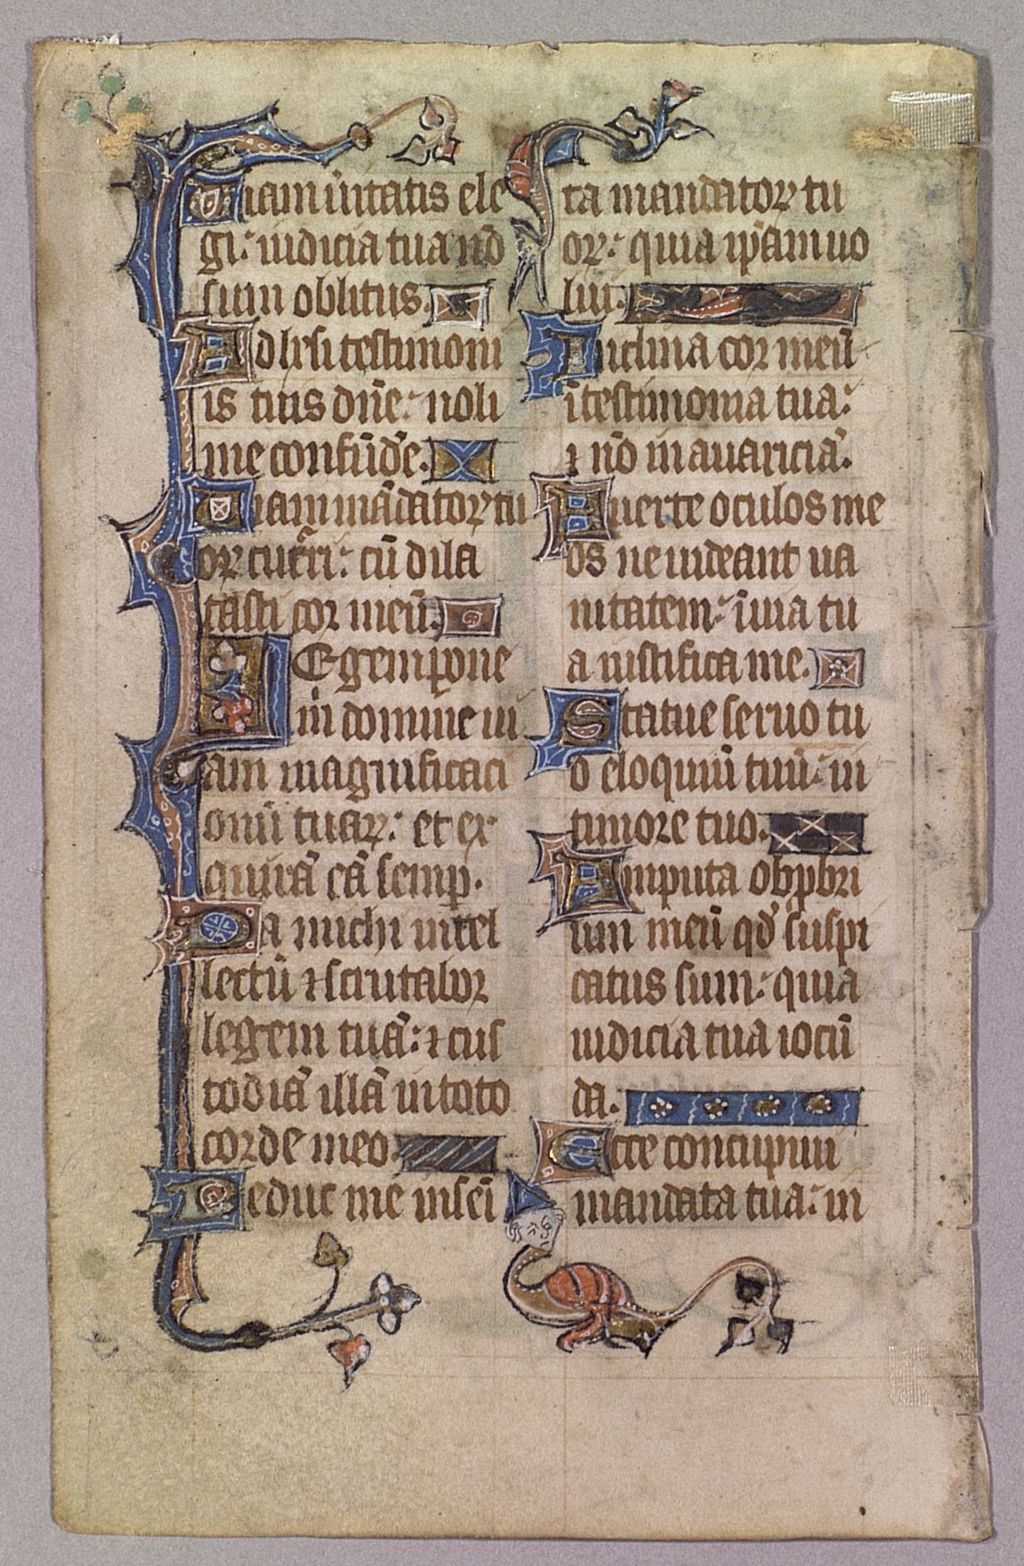 Uiam ũitatis ele
gi: iudicia tua nõ
sum oblitus.
Adhesi testimoni
is tuis dñe: noli
me confũdẽ.
Uiam mãdatoꝝ tu
oꝝ cucͬri: cũ dila
tasti cor meũ.
LEgem pone
m̃ domine ui
am iustificaci
onũ tuaꝝ: et ex
quirã eã semꝑ.
Da michi intel
lectũ ⁊ scrutabor
legem tuã: ⁊ cus
todiã illã in toto
corde meo.
Deduc me in semĩ
ta mandatoꝝ tu
oꝝ: quia ip̃am uo
lui.
Inclina cor meũ
ĩ testimonia tua:
⁊ nõ in auariciã.
Auerte oculos me
os ne uideant ua
nitatem: ĩ uia tu
a uiuifica me.
Statue seruo tu
o eloquiũ tuũ: in
timore tuo.
Amputa obꝓbri
um meũ qd̾ suspi
catus sum: quia
iudicia tua iocũ
da.
Ecce concupiui
mandata tua: in